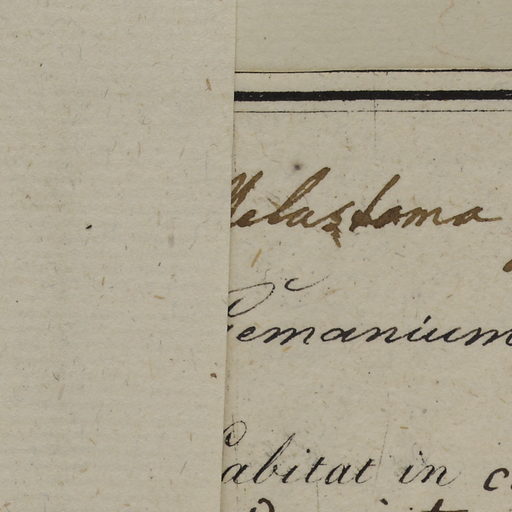 Melastoma
emanium
abitat in c